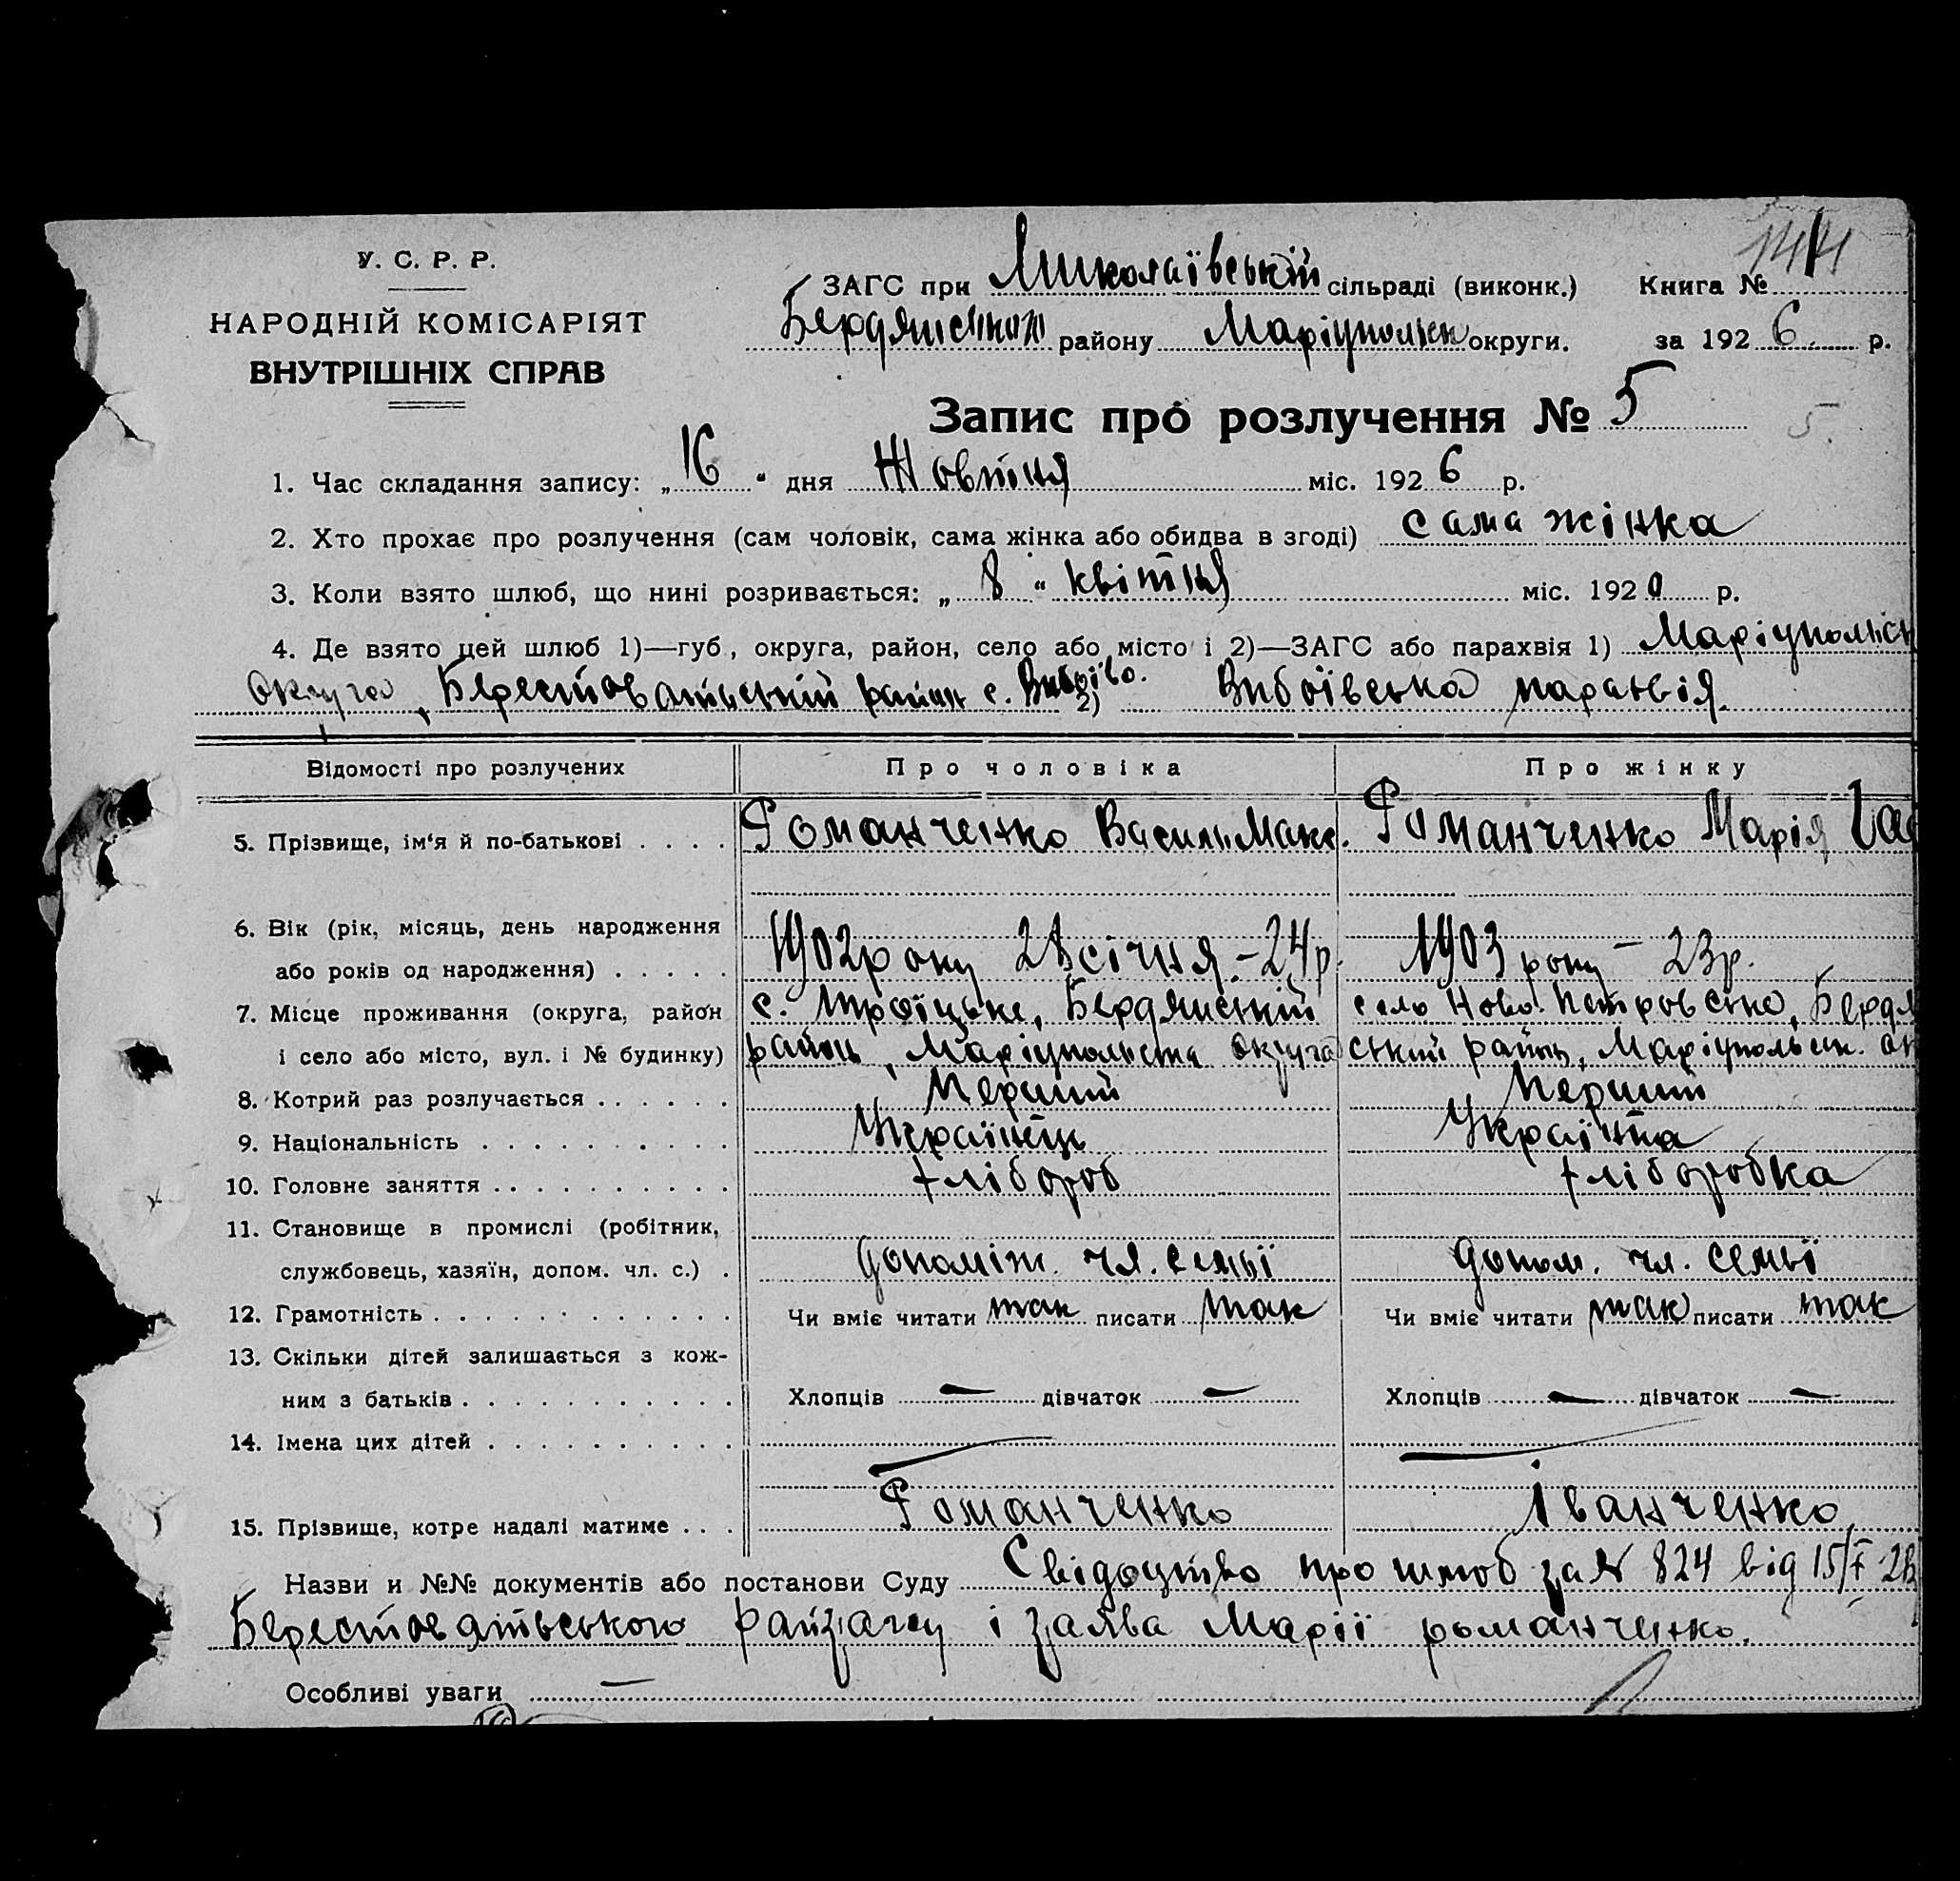 У. С. Р. Р.
НАРОДНІЙ КОМІСАРІЯТ
ВНУТРІШНІХ СПРАВ
144
ЗАГС при Миколаївській сільраді (виконк.) Книга №
району Маріупольськ округи. за 1926 р.
Запис про розлучення № 5 5.
1. Час складання запису: „16“ дня Жовтня міс. 1926 р.
2. Хто прохає про розлучення (сам чоловік, сама жінка або обидва в згоді) сама жінка
3. Коли взято шлюб, що нині розривається: „8“ квітня міс. 1920 р.
4. Де взято цей шлюб 1)—губ., округа, район, село або місто і 2)—ЗАГС або парахвія 1) Маріупольськ
Округа, Берестоватський район с. 2) парахвія.
Відомості про розлучених Про чоловіка Про жінку
5. Прізвище, ім‘я й по-батькові . . . . Романченко Василь Макс. Романченко Марія
6. Вік (рік, місяць, день народження
або років од народження) . . . . . 1902 року 28 січня - 24 р. 1903 року - 23 р.
7. Місце проживання (округа, район с. Троїцьке, Бердянській село Ново Петровське, Бердя
і село або місто, вул. і № будинку) район, Маріупольська округа ський район, Маріупольськ. ок
8. Котрий раз розлучається . . . . . . Перший Перший
9. Національність . . . . . . . . . . Українець Українка
10. Головне заняття . . . . . . . . . . хлібороб хліборобка
11. Становище в промислі (робітник,
службовець, хазяїн, допом. чл. с.) . допоміж. чл. семьї допом. чл. семьї
12. Грамотність . . . . . . . . . . . . Чи вміє читати так писати так Чи вміє читати так писати так
13. Скільки дітей залишається з кож-
ним з батьків . . . . . . . . . . . Хлопців — дівчаток — Хлопців — дівчаток —
14. Імена цих дітей . . . . . . . . . . — —
15. Прізвище, котре надалі матиме . . . Романченко Іванченко
Назви и №№ документів або постанови Суду Свідоцтво про шлюб за № 824 від 15/X
Берестоватського райзагсу і заява Марії романченко.
Особливі уваги —